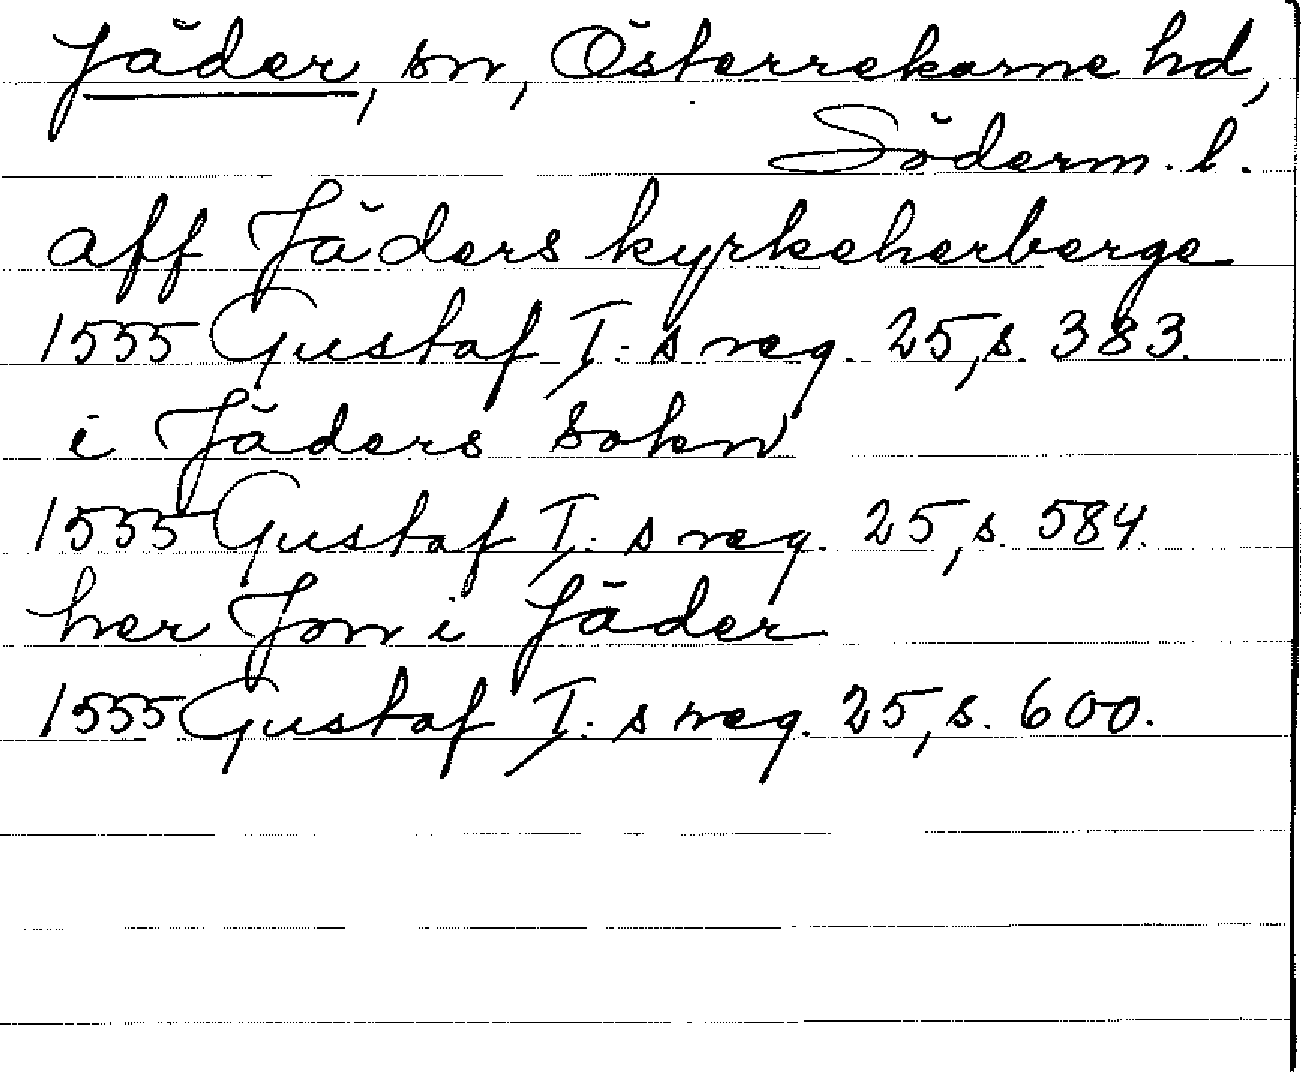 Jäder, sn, Österrekarne hd,
Söderm. l.
aff Jäders kyrkeherberge
1555 Gustaf I:s reg. 25, s. 383.
i Jäders sokn
1555 Gustaf I:s reg. 25, s. 584.
her Jon i Jäder
1555 Gustaf I:s reg. 25, s. 600.